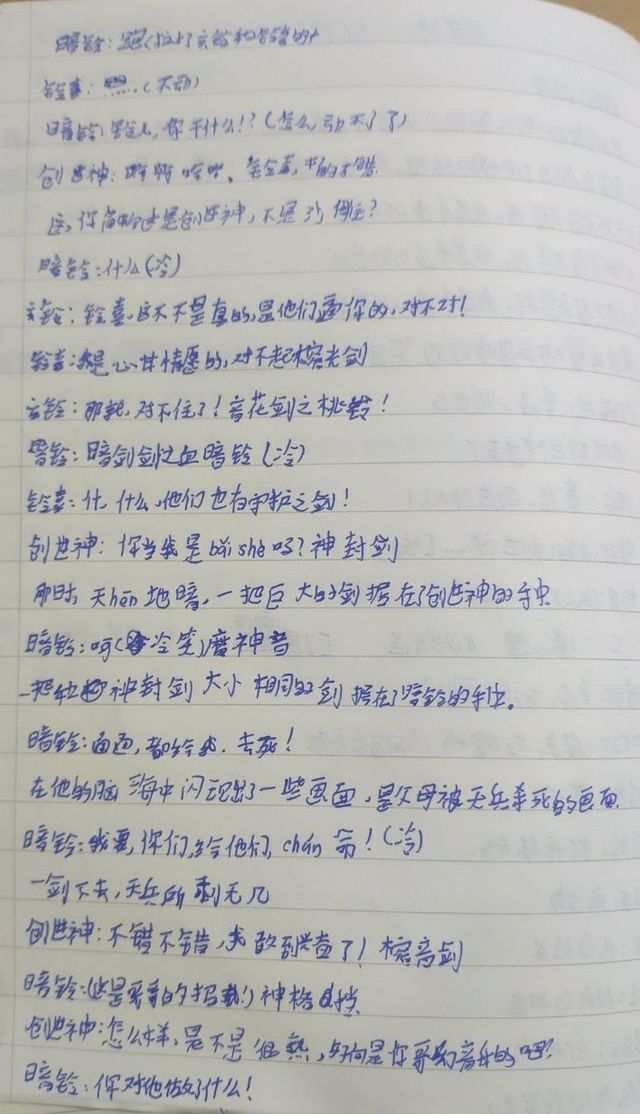 暗铃:跑(拉上了玄铃和铃喜的
铃喜:……(不动)
暗铃:铃喜,你干什么!?(怎么,动不了了)
创世神:啊哈哈哈,铃喜,干的不错
这,你
暗铃:什么(冷)
玄铃:铃喜,这不不是真的,是他们逼你的,对不对!
铃喜:我是心甘情愿的,对不起榕光剑
玄铃:那就,对不住了!音花剑之桃铃!
暗铃:暗剑剑之血暗铃(冷)
铃喜:什,什么,他们也有守护之剑!
创世神:你当我是bǎi shè吗?神封剑
那时,天hēn地暗,一把巨大的剑握在了创世神的手中
暗铃:呵(冷笑)魔神音
一把和神封剑大小相同的剑握在了暗铃的手中。
暗铃:面面,都给我,去死!
在他的脑海中闪现出了一些画面,是父母被天兵杀死的画面
暗铃:我要,你们,给他们,chán命!(冷)
一剑下去,天兵所剩无几
创世神:不错不错,我 了!榕音剑
暗铃:(这是哥哥的招式)神格挡
创世神:怎么样,是不是很熟,好像是你哥 的吧?
暗铃:你对他做了什么!